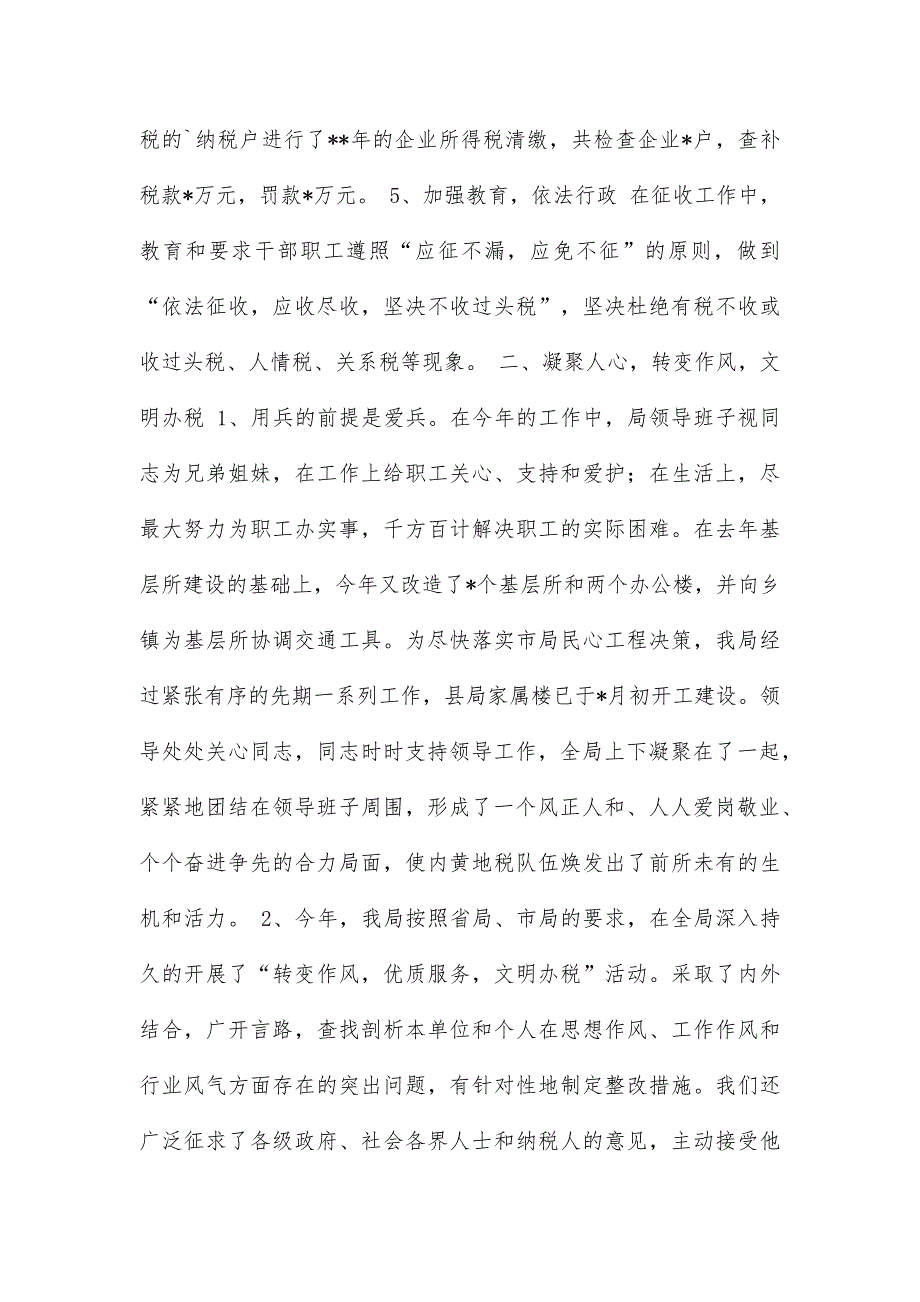 税的`纳税户进行了**年的企业所得税清缴，共检查企业*户，查补
税款*万元，罚款*万元。 5、加强教育，依法行政 在征收工作中，
教育和要求干部职工遵照“应征不漏，应免不征”的原则，做到
“依法征收，应收尽收，坚决不收过头税”，坚决杜绝有税不收或
收过头税、人情税、关系税等现象。 二、凝聚人心，转变作风，文
明办税 1、用兵的前提是爱兵。在今年的工作中，局领导班子视同
志为兄弟姐妹，在工作上给职工关心、支持和爱护；在生活上，尽
最大努力为职工办实事，千方百计解决职工的实际困难。在去年基
层所建设的基础上，今年又改造了*个基层所和两个办公楼，并向乡
镇为基层所协调交通工具。为尽快落实市局民心工程决策，我局经
过紧张有序的先期一系列工作，县局家属楼已于*月初开工建设。领
导处处关心同志，同志时时支持领导工作，全局上下凝聚在了一起，
紧紧地团结在领导班子周围，形成了一个风正人和、人人爱岗敬业、
个个奋进争先的合力局面，使内黄地税队伍焕发出了前所未有的生
机和活力。 2、今年，我局按照省局、市局的要求，在全局深入持
久的开展了“转变作风，优质服务，文明办税”活动。采取了内外
结合，广开言路，查找剖析本单位和个人在思想作风、工作作风和
行业风气方面存在的突出问题，有针对性地制定整改措施。我们还
广泛征求了各级政府、社会各界人士和纳税人的意见，主动接受他